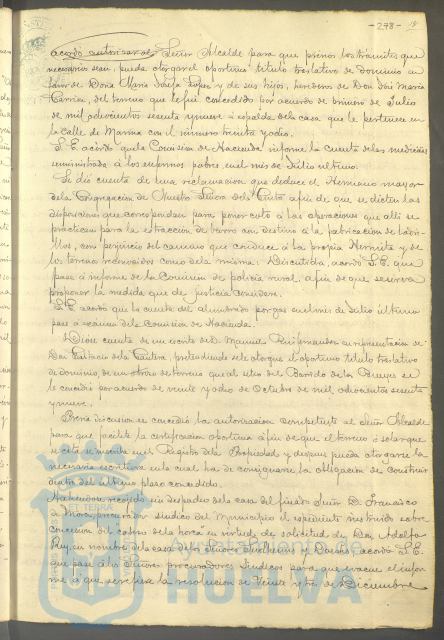 -278-
acordó autorizar al Señor Alcalde para que prévios los trámites que
necesarios sean, pueda otorgar el oportuno título traslativo de dominio en
favor de Doña María Josefa Lopez y de sus hijos, herederos de Don José María
Carrion, del terreno que le fué concedido por acuerdo de primero de Julio
de mil ochocientos sesenta y nueve á espalda de la casa que le pertenece en
la Calle de Marina con el número treinta y ocho.
S.E. acordó que la Comision de Hacienda informe la cuenta de las medicinas
suministradas á los enfermos pobres en el mes de Julio último.
Se dió cuenta de una reclamacion que deduce el Hermano mayor
de la Congregacion de Nuestra Señora de la Cinta á fin de que se dicten las
disposiciones que correspondan para poner coto á las operaciones que allí se
practican para la extraccion de barro con destino á la fabricacion de ladri-
llos, con perjuicio del camino que conduce á la propia Hermita y de
los terrenos rodeados como de la misma: Discutida, acordó S.E. que
pase á informe de la Comision de policia rural, á fin de que se sirva
proponer la medida que de justicia considere.
S.E. acordó que la cuenta del alumbrado por gas en el mes de Julio último
pase á exámen de la Comision de Hacienda.
Dióse cuenta de un escrito de D. Manuel en representacion de
Don pretendiendo se le otorgue el oportuno título traslativo
de dominio de un trozo de terreno que al sitio del se
le concedió por acuerdo de veinte y ocho de Octubre de mil ochocientos sesenta
y nueve.
Prévia discusion se concedió la autorizacion competente al Señor Alcalde
para que facilite la certificacion oportuna á fin de que el terreno ó solar que
se cita se inscriba en el Registro de la Propiedad y despues pueda otorgarse la
necesaria escritura en la cual ha de consignarse la obligacion de construir
dentro del último plazo concedido.
Habiéndose recogido sin despacho de la casa del finado Señor D. Francisco
de Mora, procurador síndico del Municipio el espediente instruido sobre
concesion del cabezo de la horca en virtud de solicitud de Don Adolfo
Rey, en nombre de la casa de los Señores Sundheim y Doetsch, acordó S.E.
que pase á los Señores procuradores Síndicos para que evacue el infor-
me á que se refiere la resolucion de Veinte y tres de Diciembre
Ayuntamiento de
HUELVA